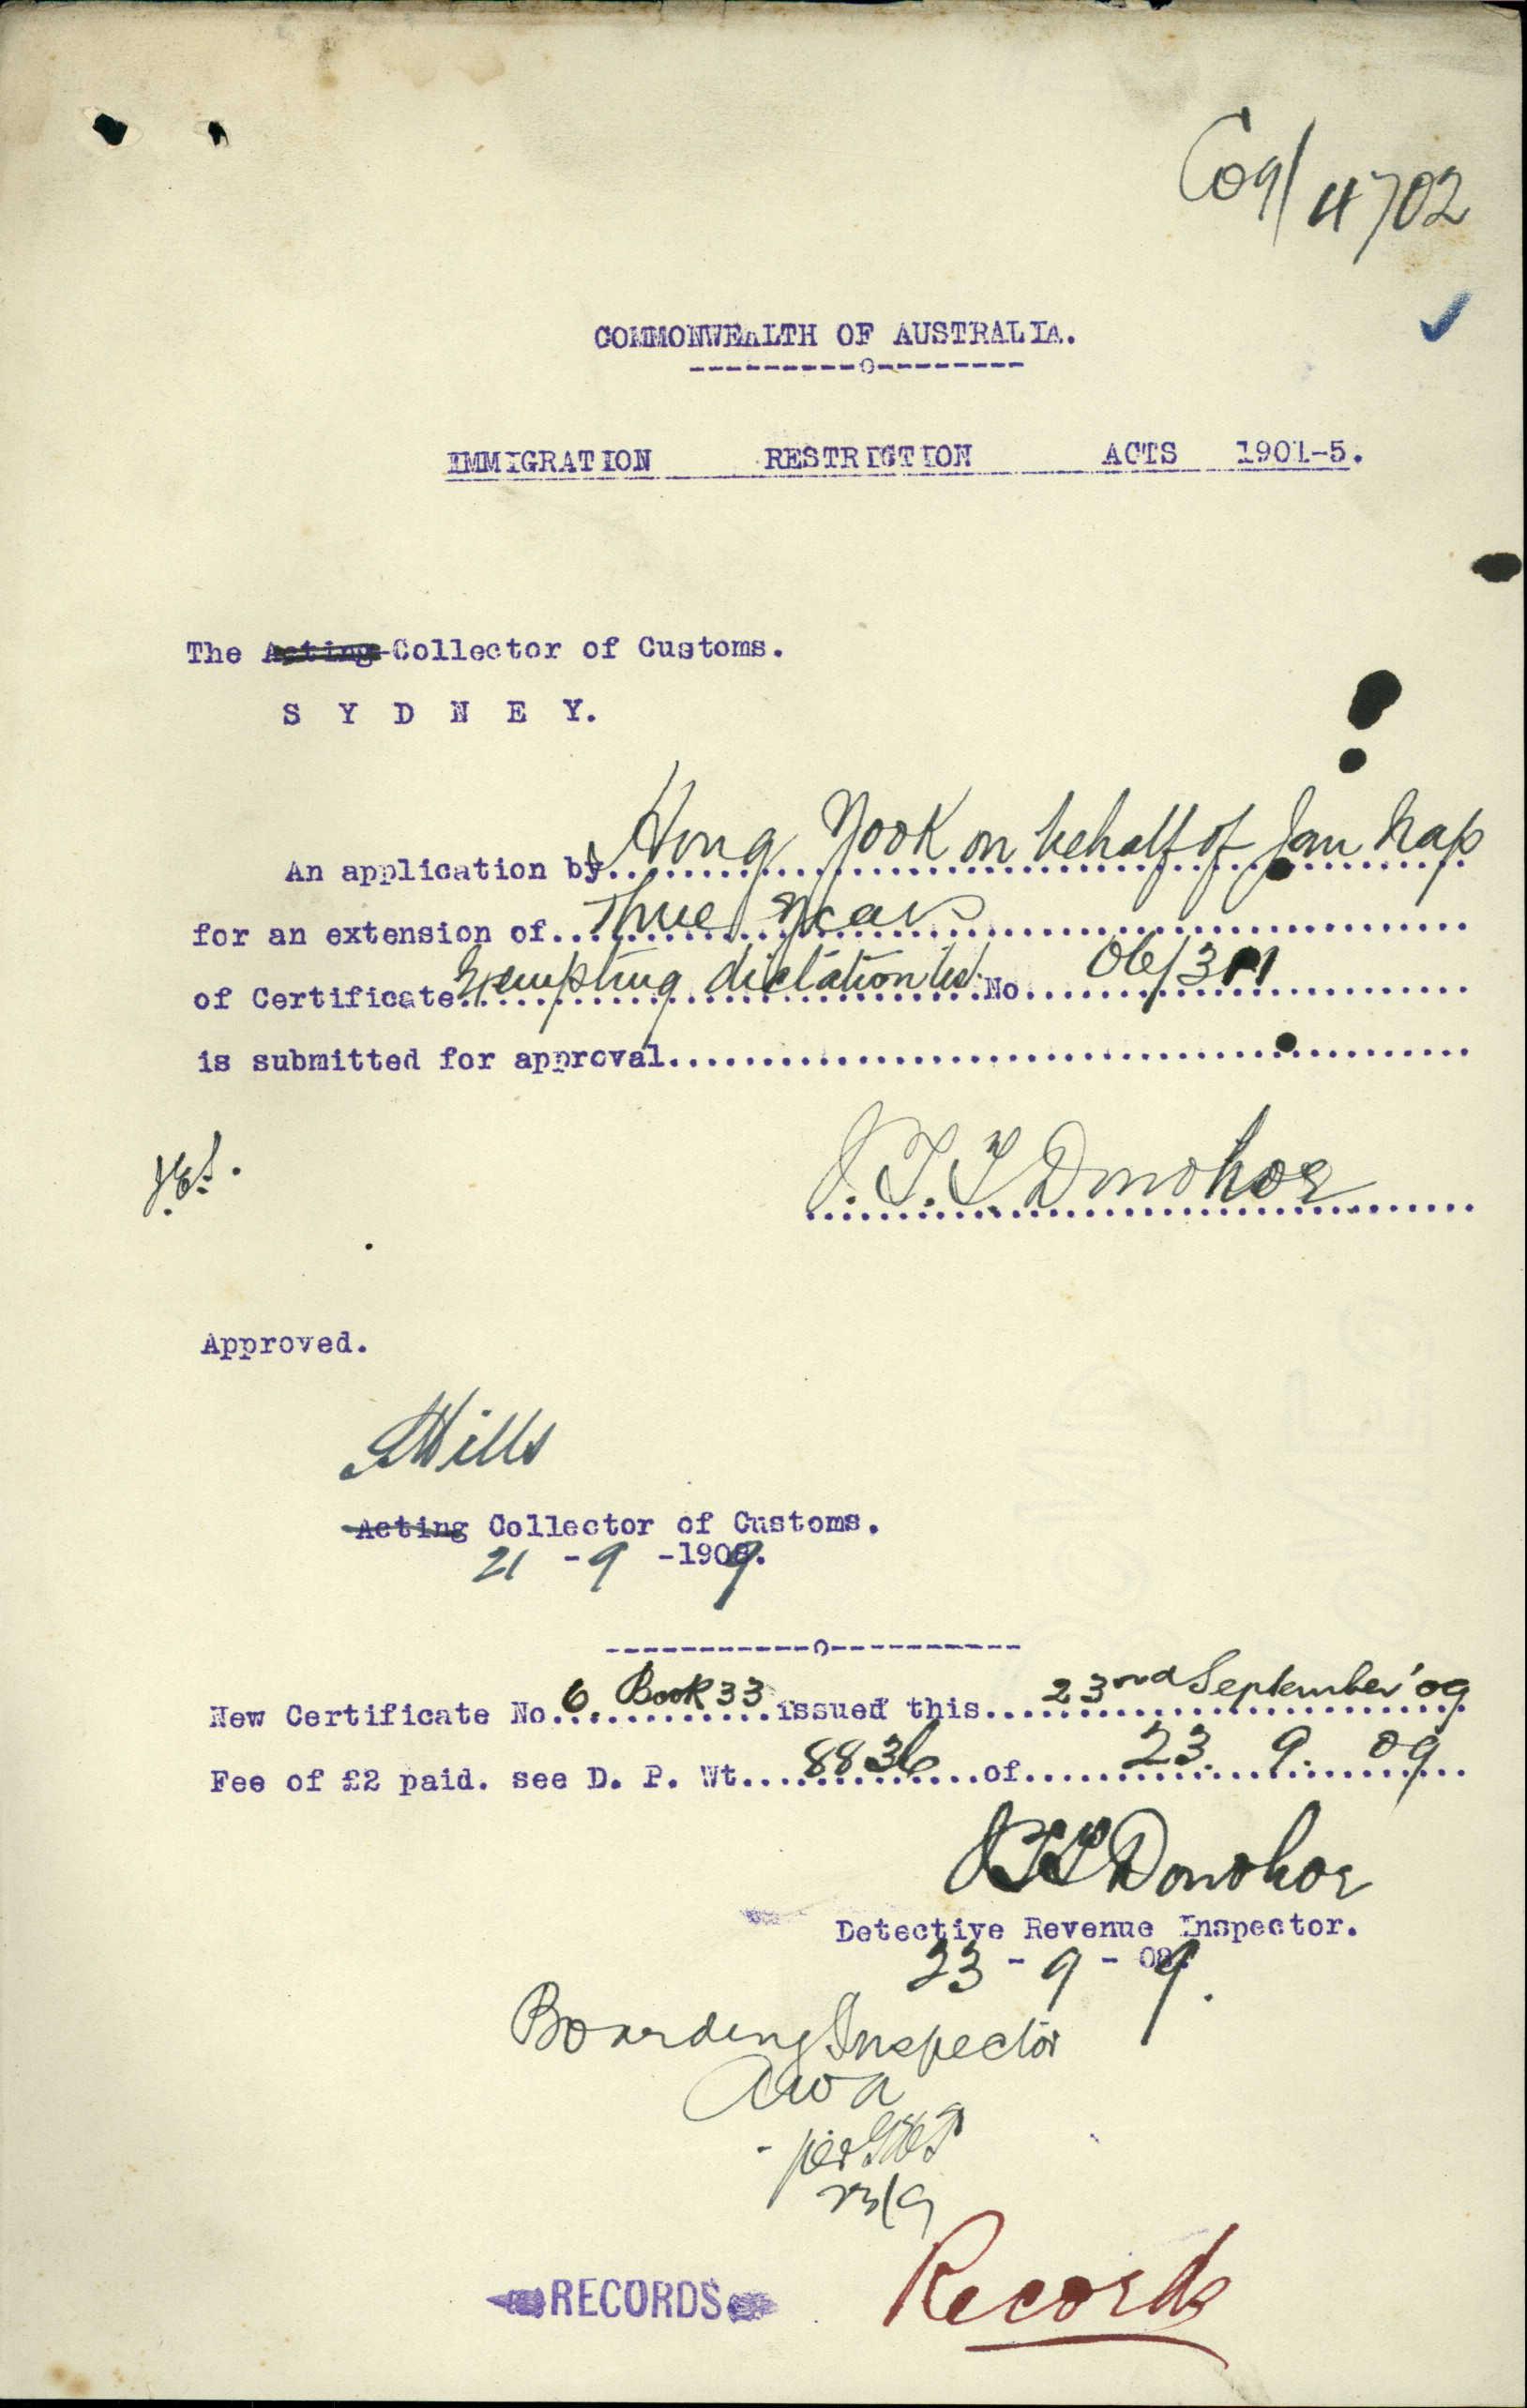 C09/4702
COMMONWEALTH OF AUSTRALIA.
----------o--------
IMMIGRATION RESTRICTION ACTS 1901-5.
The Acting Collector of Customs.
S Y D N E Y.
An application by Hong Yook on behalf of Jam Nap
for an extension of three years
of Certificate Exempting dictation test No. 06/311
is submitted for approval
J.T.T. Donohoe
Approved.
S Mills
Acting Collector of Customs.
21 - 9 - 1909.
------------o-----------
New Certificate No. 6. Book 33 issued this 23rd September '09
Fee of £2 paid. see D. P. Wt. 8836 of 23. 9. 09
J.T.T. Donohoe
Detective Revenue Inspector.
23 - 9 - 09.
Boarding Inspector
per
23/9
RECORDS
Records